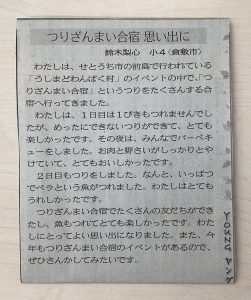 つりざんまい合宿 思い出に
鈴木梨心 小4(倉敷市)
わたしは、せとうち市の前島で行われている
「うしまどわんぱく村」のイベントの中で、「つ
りざんまい合宿」というつりをたくさんする合
宿へ行ってきました。
わたしは、1日目は1ぴきもつれませんでし
たが、めったにできないつりができて、とても
楽しかったです。その夜は、みんなでバーベキ
ューをしました。お肉と野さいがしっかりとや
けていて、とてもおいしかったです。
2日目もつりをしました。なんと、いっぱつ
でベラという魚がつれました。わたしはとても
うれしかったです。
つりざんまい合宿でたくさんの友だちができ
たし、魚もつれてとても楽しかったです。わた
しにとってよい思い出になりました。また、今
年もつりざんまい合宿のイベントがあるので、
ぜひさんかしてみたいです。
YOUNG ヤング